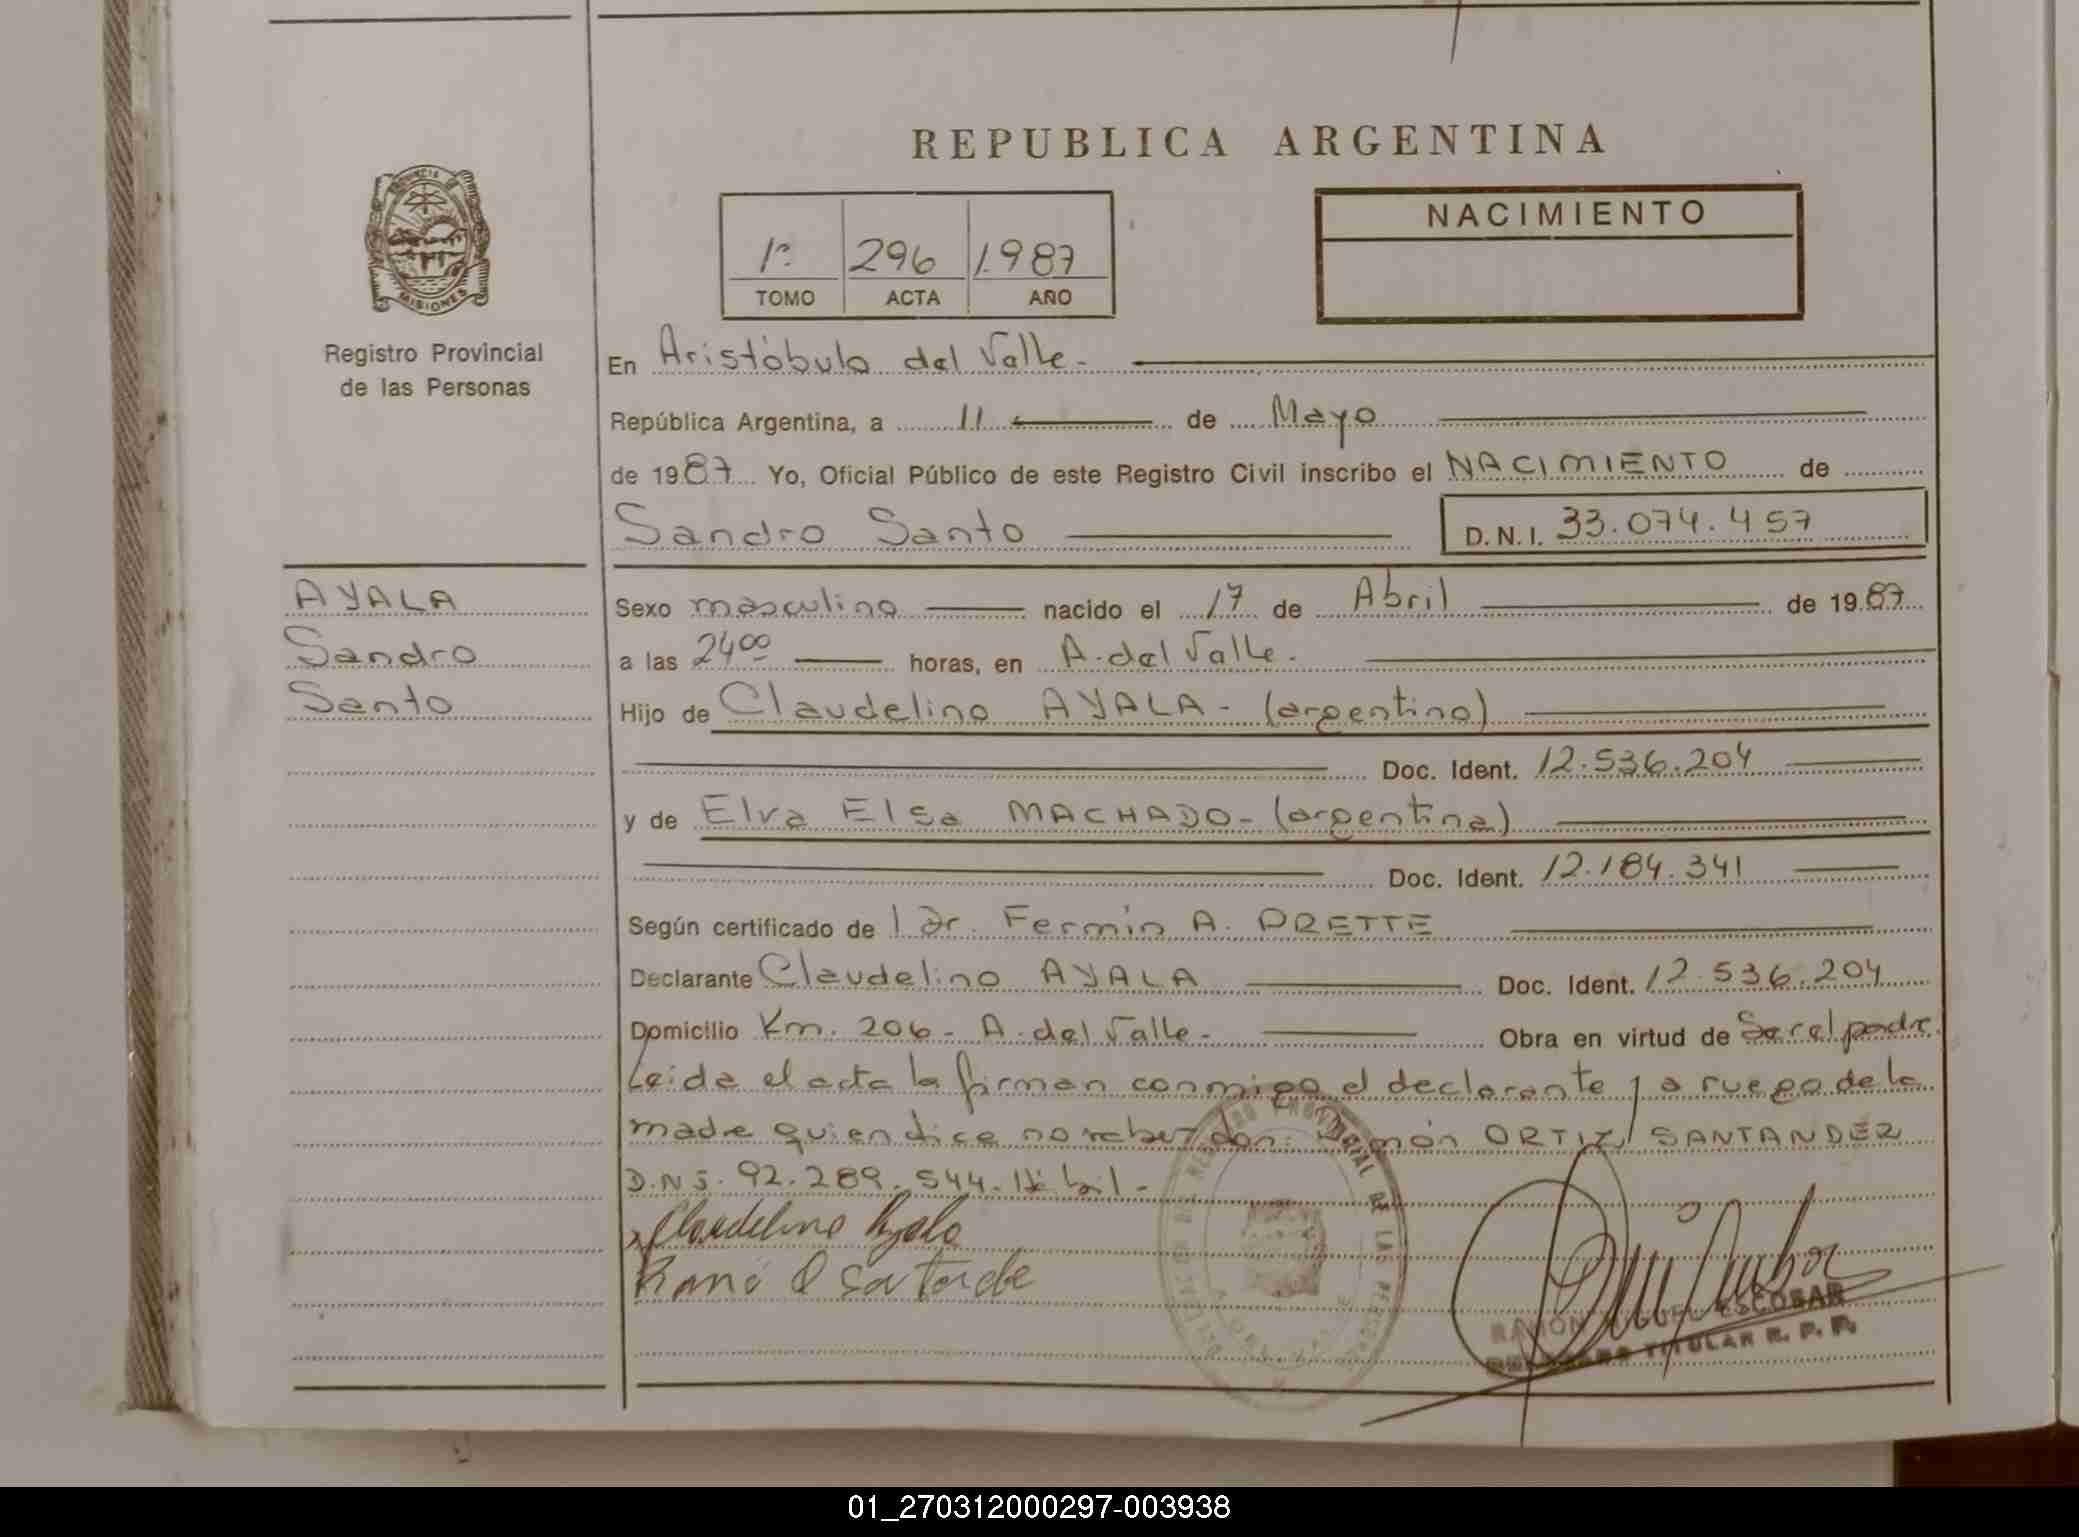 REPUBLICA ARGENTINA
PROVINCIA DE
MISIONES
Registro Provincial
de las Personas
1º 296 1987
TOMO ACTA AÑO
NACIMIENTO
En Aristóbulo del Valle.-
República Argentina, a 11 de Mayo
de 1987 Yo, Oficial Público de este Registro Civil inscribo el NACIMIENTO de
Sandro Santo D.N.I. 33.074.457
AYALA
Sandro
Santo
Sexo masculino nacido el 17 de Abril de 1987
a las 24 00 horas, en A. del Valle.-
Hijo de Claudelino AYALA - (argentino)
Doc. Ident. 12.536.204
y de Elva Elsa MACHADO - (argentina)
Doc. Ident. 12.184.341
Según certificado de l Dr. Fermín A. PRETTE
Declarante Claudelino AYALA Doc. Ident. 12.536.204
Domicilio Km. 206 - A. del Valle.- Obra en virtud de Ser el padre.
Leida el acta la firman conmigo el declarante y a ruego de la
madre quien dice no saber don: Ramón ORTIZ SANTANDER
D.N.I. 92.289.544.
Claudelino Ayala
RAMON MIGUEL ESCOBAR
TITULAR R. P. P.
01_270312000297-003938